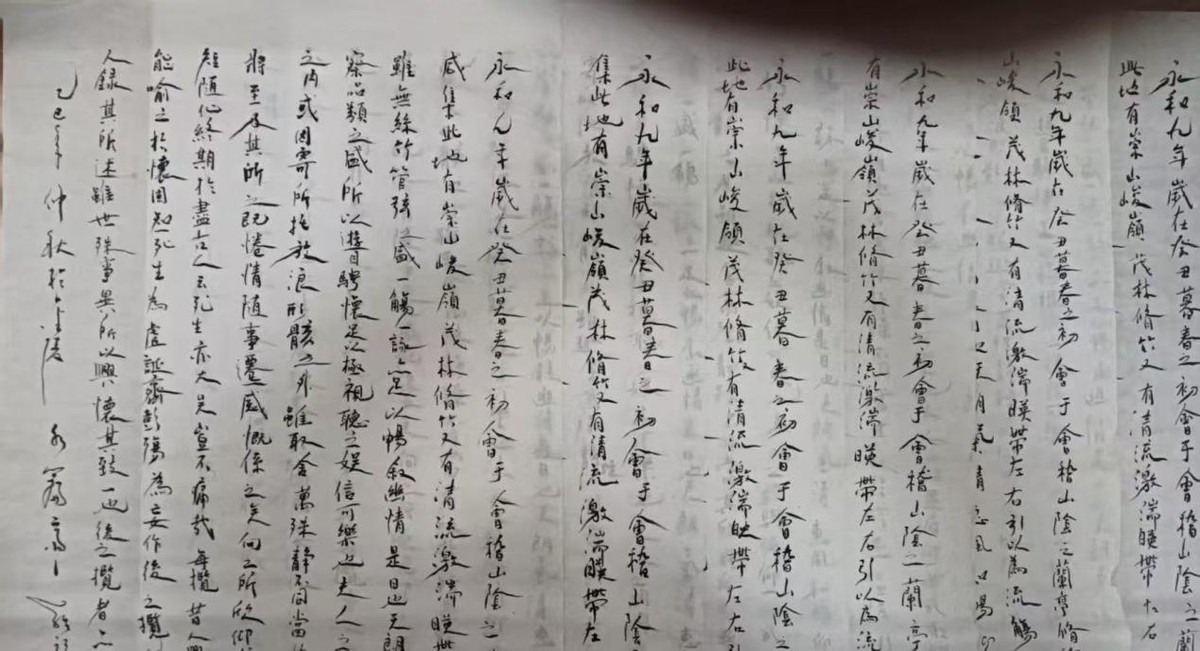 永和九年歲在癸丑暮春之初會于會稽山陰之蘭
此地有崇山峻嶺茂林脩竹又有清流激湍暎帶左右
永和九年歲在癸丑暮春之初會于會稽山陰之蘭亭脩
山峻領茂林脩竹又有清流激湍暎帶左右引以為流觴
天月氣清
永和九年歲在癸丑暮春之初會于會稽山陰之蘭亭
有崇山峻嶺茂林脩竹又有清流激湍暎帶左右引以為流
永和九年歲在癸丑暮春之初會于會稽山陰之
此地有崇山峻領茂林脩竹有清流激湍映帶左右引
永和九年歲在癸丑暮春之初會于會稽山陰
集此地有崇山峻嶺茂林脩竹又有清流激湍暎帶左
永和九年歲在癸丑暮春之初會于會稽山陰之
咸集此地有崇山峻嶺茂林脩竹又有清流激湍暎帶
雖無絲竹管弦之盛一觴一詠亦足以暢敘幽情是日也天朗
察品類之盛所以遊目騁懷足以極視聽之娛信可樂也夫人之
之內或因寄所托放浪形骸之外雖取舍萬殊靜不同當
將至及其所之既惓情隨事遷感慨係之矣向之所欣
短隨化終期於盡古人云死生亦大矣豈不痛哉每攬昔人
能喻之於懷固知死生為虛誕齊彭殤為妄作後之攬
人錄其所述雖世殊事異所以興懷其致一也後之攬者
乙巳年仲秋於